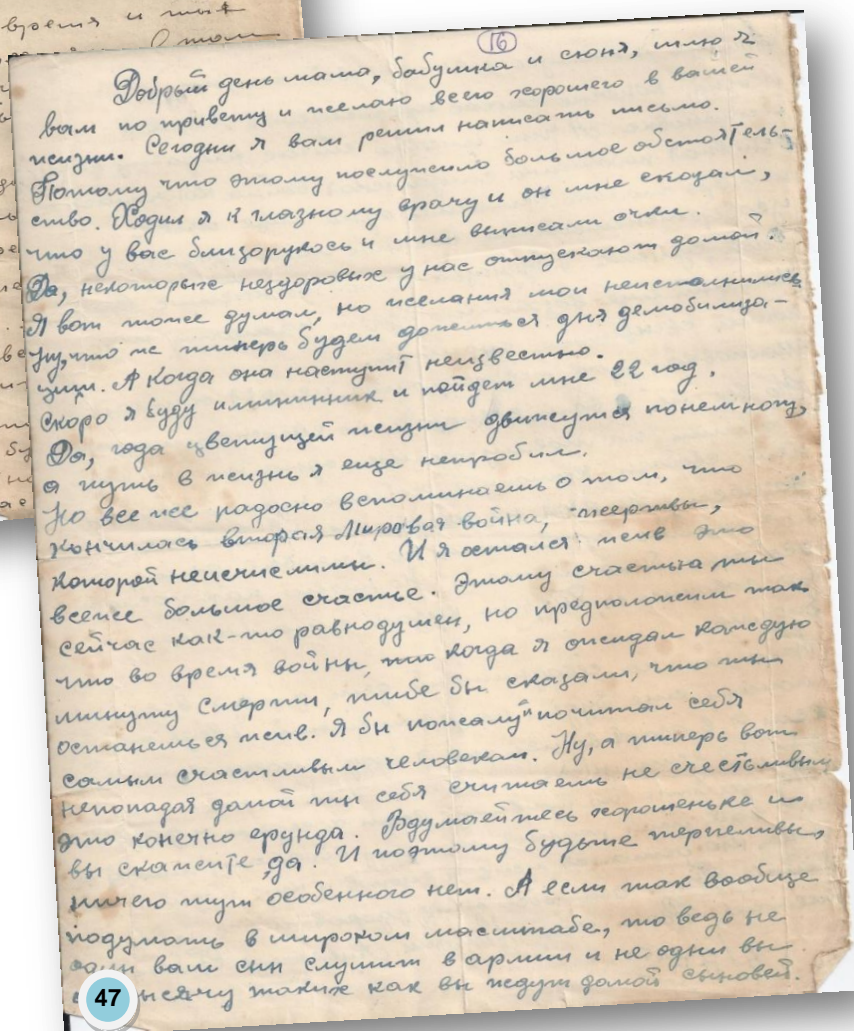 время и
16
Добрый день мама, бабушка и сюня, шлю я
вам по привету и желаю всего хорошего в вашей
жизни. Сегодня я вам решил написать письмо.
Потому что этому послужило большое обстоятель-
ство. Ходил я к глазному врачу и он мне сказал,
что у вас близорукось и мне выписали очки.
Да, некоторых нездоровых у нас отпускают домой.
Я вот тоже думал, но желания мои неисполнились
Ну, что ж типерь будем дожидаться дня демобилиза-
ции. А когда она наступит неизвестно.
Скоро я буду имининник и пойдет мне 22 год.
Да, года цветущей жизни движутся понемногу,
а путь в жизнь я еще непробил.
Но все же радосно вспоминаешь о том, что
кончилась вторая Мировая война, жертвы,
которой неисчислимы. И я остался жив это
всеже большое счастье. Этому счастью ты
сейчас как-то равнодушен, но предположим так
что во время войны, то когда я ожидал каждую
минуту смерти, тибе бы сказали, что ты
останешься жив. Я бы пожалуй почитал себя
самым счастливым человеком. Ну, а типерь вот
непопадая домой ты себя считаешь не счестьливым
это конечно ерунда. Вдумайтесь хорошенько и
вы скажите, да. И поэтому будьте терпеливы,
ничего тут особенного нет. А если так вообще
подумать в широком масштабе, то ведь не
один ваш сын служит в армии и не одни вы
тысячу таких как вы ждут домой сыновей.
47